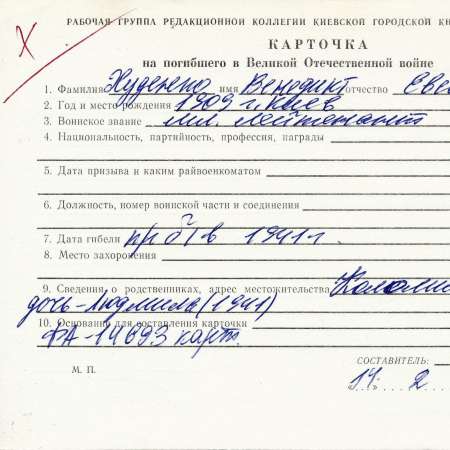 РАБОЧАЯ ГРУППА РЕДАКЦИОННОЙ КОЛЛЕГИИ КИЕВСКОЙ ГОРОДСКОЙ КН
КАРТОЧКА
на погибшего в Великой Отечественной войне
1. Фамилия Худенко имя Бенедикт отчество Евс
2. Год и место рождения 1909 г. Киев
3. Воинское звание мл. лейтенант
4. Национальность, партийность, профессия, награды
5. Дата призыва и каким райвоенкоматом
6. Должность, номер воинской части и соединения
7. Дата гибели пр б/в 1941 г.
8. Место захоронения
9. Сведения о родственниках, адрес местожительства
дочь - Людмила (1941)
10. Основание для составления карточки
ФА-14693 карт.
СОСТАВИТЕЛЬ:
М. П.
"14" 2